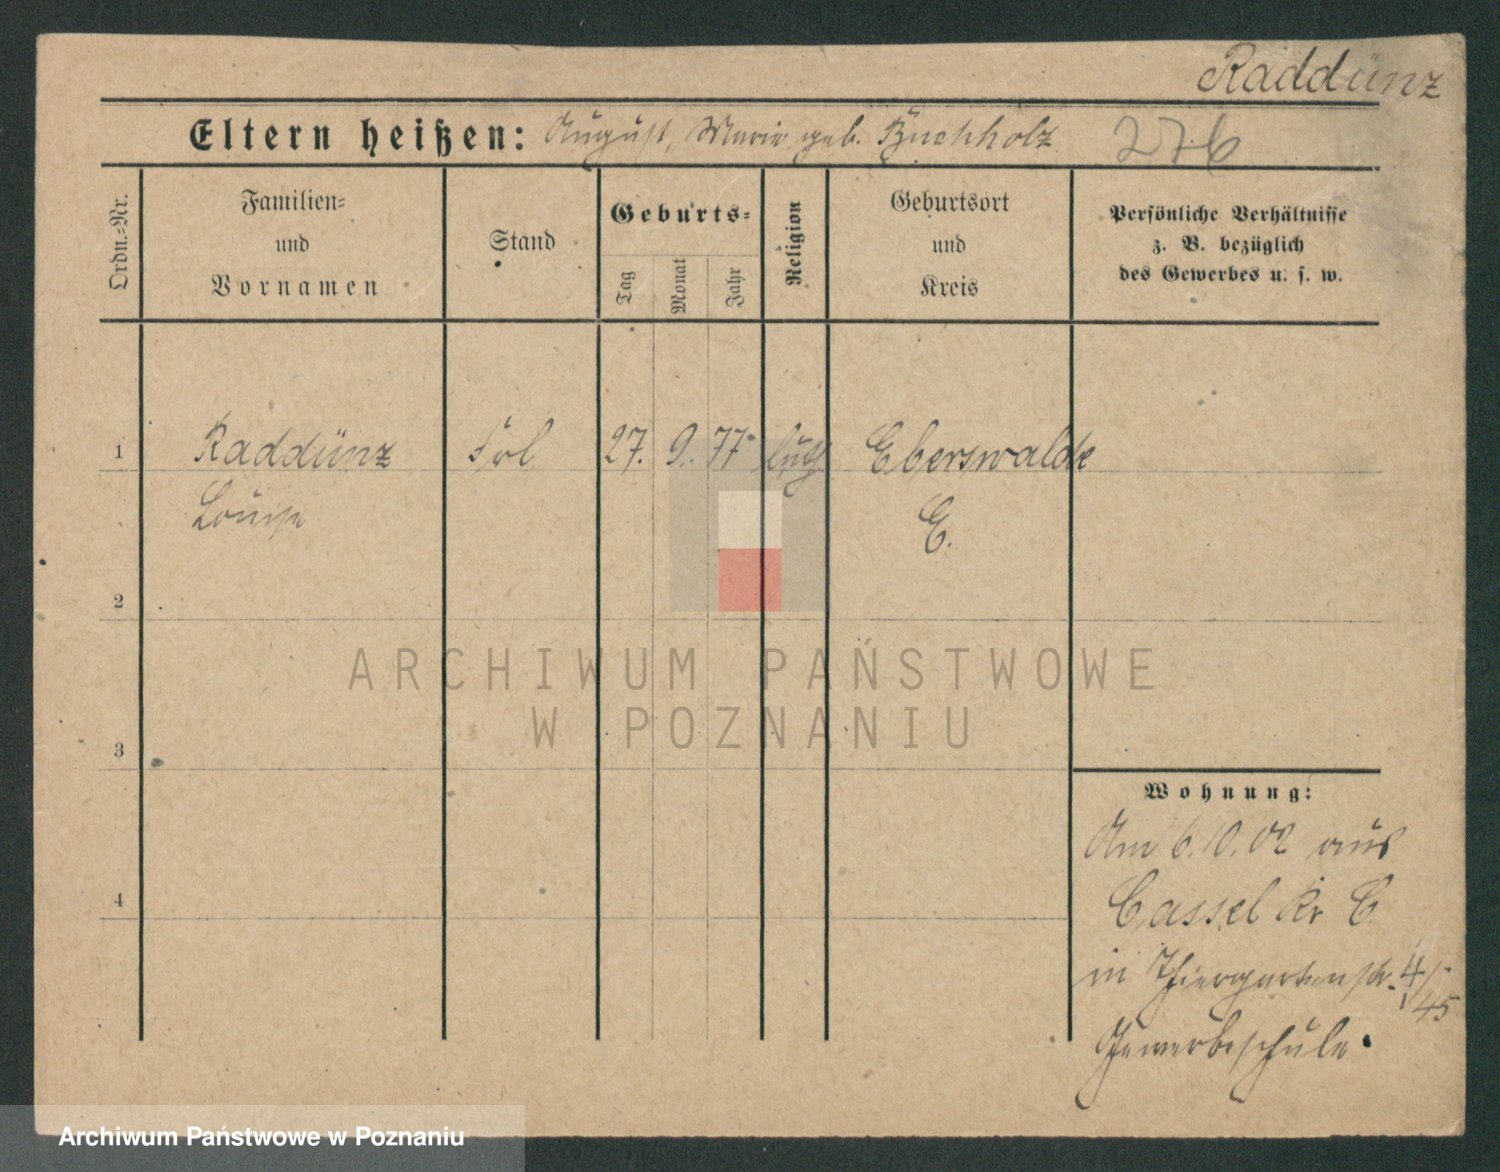 Raddünz
Eltern heißen: August, Marie geb. Buchholz 276
Ordn.=Nr.
Familien=
und
Vornamen
Stand
Geburts=
Tag
Monat
Jahr
Religion
Geburtsort
und
Kreis
Persönliche Verhältnisse
z. B. bezüglich
des Gewerbes u. s. w.
1 Raddünz Frl. 27. 9. 77 luth. Eberswalde
Louise E.
2
ARCHIWUM PAŃSTWOWE
W POZNANIU
3
Wohnung:
Am 6.10.02 aus
Cassel Kr C
4
in Thiergartenstr. 4/5
45
Gewerbeschule.
Archiwum Państwowe w Poznaniu